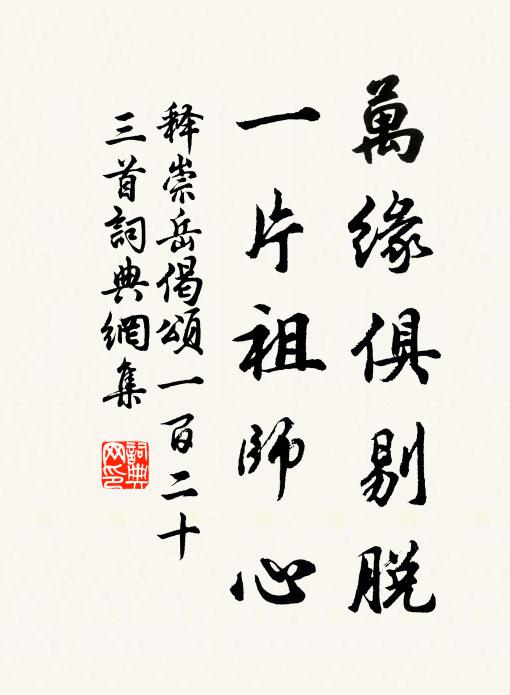 萬緣俱剔脱
一片祖師心
释崇岳偈頌一百二十
三首詞典網集
詞典
网印